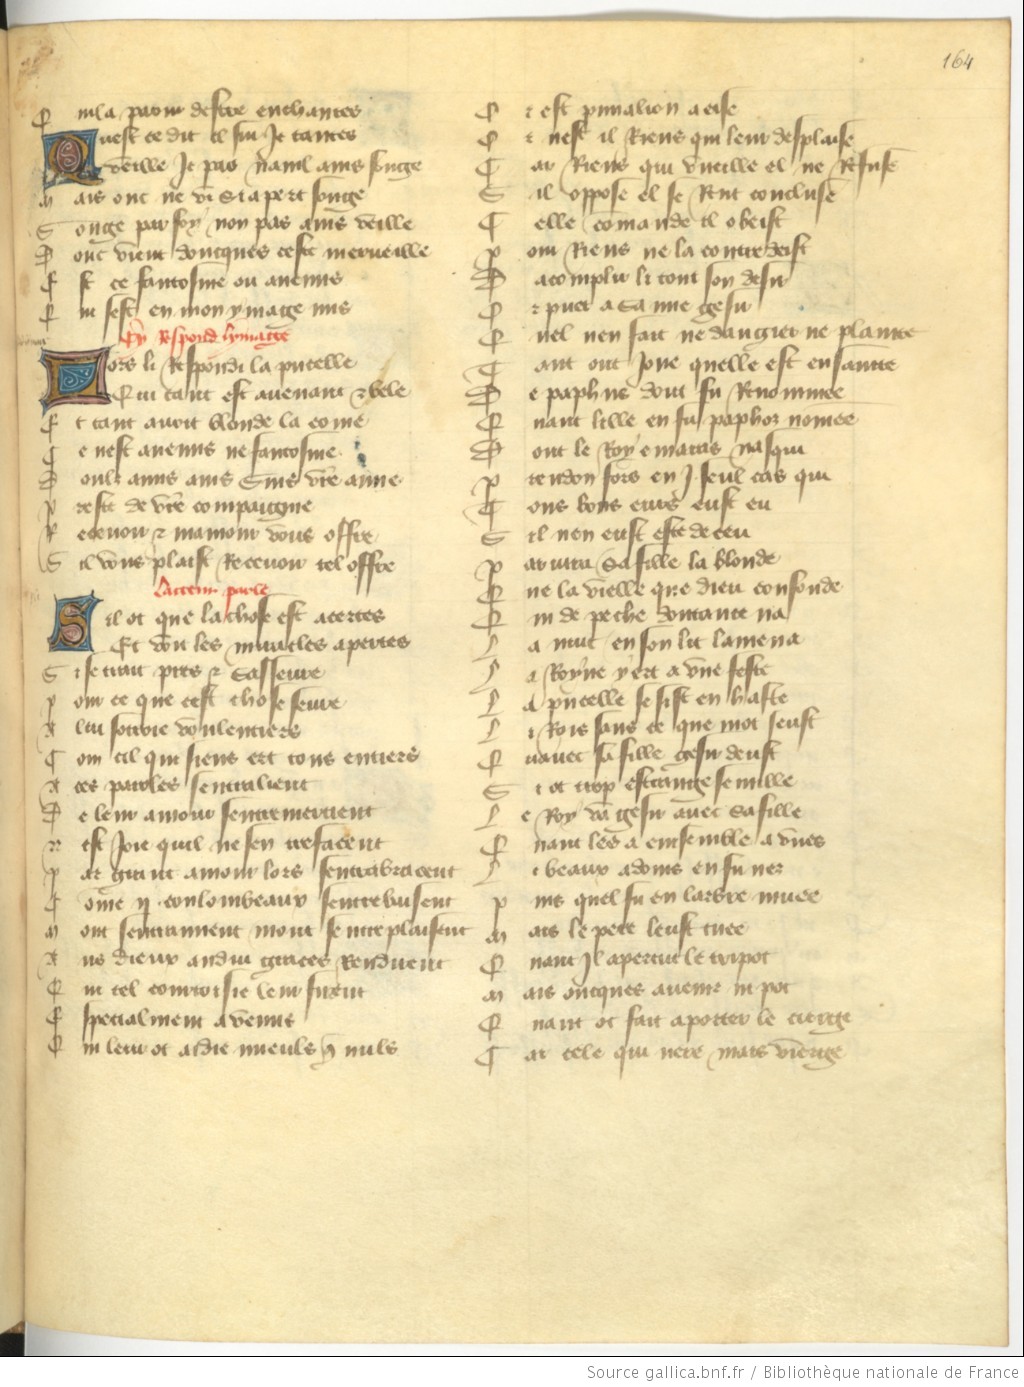 164
E mla paour destre enchantes
Quest ce dit il sui Je tantes
Veille Je pas nanil ains songe
Mais onc ne vi si apert songe
Songe par foy non pas ains veille
Dont vient doncques ceste merveille
Est ce fantosme ou anemis
Qui sest en mon ymage mis
Cy Respond lymage
Lors li Respondi la pucelle
Qui tant est avenant et bele
Et tant avoit blonde la come
Ce nest anemis ne fantosme
Doulz amis ains suis vre amie
Preste de vre compaignie
Recevoir et mamour vous offre
Sil vous plaist Recevoir tel offre
Lacteur parle
Sil ot que la chose est acertes
Et voit les miracles apertes
Si se trait pres et sasseure
Pour ce que cest chose seure
A lui sottroie voulentiers
Com cil qui siens ert tous entiers
A ces paroles sentralient
De leur amour sentremercient
N est Joie quil ne sen trefacent
Par grant amour lors sentrabracent
Come ij coulombeaux sentrebaisent
Mout sentraiment mout sentreplaisent
Aus dieux andui graces Rendirent
Qui tel courtoisie leur firent
Especialment a Venus
Qui leur ot aidie mieulx que nulz
Or est pimalion a aise
Or nest il Riens qui leur desplaise
Car Riens qui vueille el ne Refuse
Sil oppose el se Rent concluse
Celle comande il obeist
Pour Riens ne la contredeist
Dacomplir li tout son desir
Or puet a samie gesir
Quel nen fait ne dangier ne plainte
Tant ont Joue quelle est ensainte
De paphus dont fu Renommee
Quant lille en fu paphoz nomee
Dont le Roy cinaras nasqui
Preudon fors en j seul cas qui
Tous bons eurs eust eu
Sil nen eust este deceu
Par mirra sa fille la blonde
Que la vieille que dieu confonde
Qui de peche doutance na
La nuit en son lit lamena
La Royne yert a une feste
La pucelle se sist en haste
Li Rois sans ce que mot seust
Quavec sa fille gesir deust
Si ot trop estrange semille
Le Roy voit gesir avec sa fille
Quant les a ensemble aunes
Li beaux adonis en fu nez
Puis quel fu en larbre muee
Mais le pere leust tuee
Quant Il apercut le tripot
Mais oncques avenir ni pot
Quant ot fait aporter le cierge
Car cele qui nere mais vierge